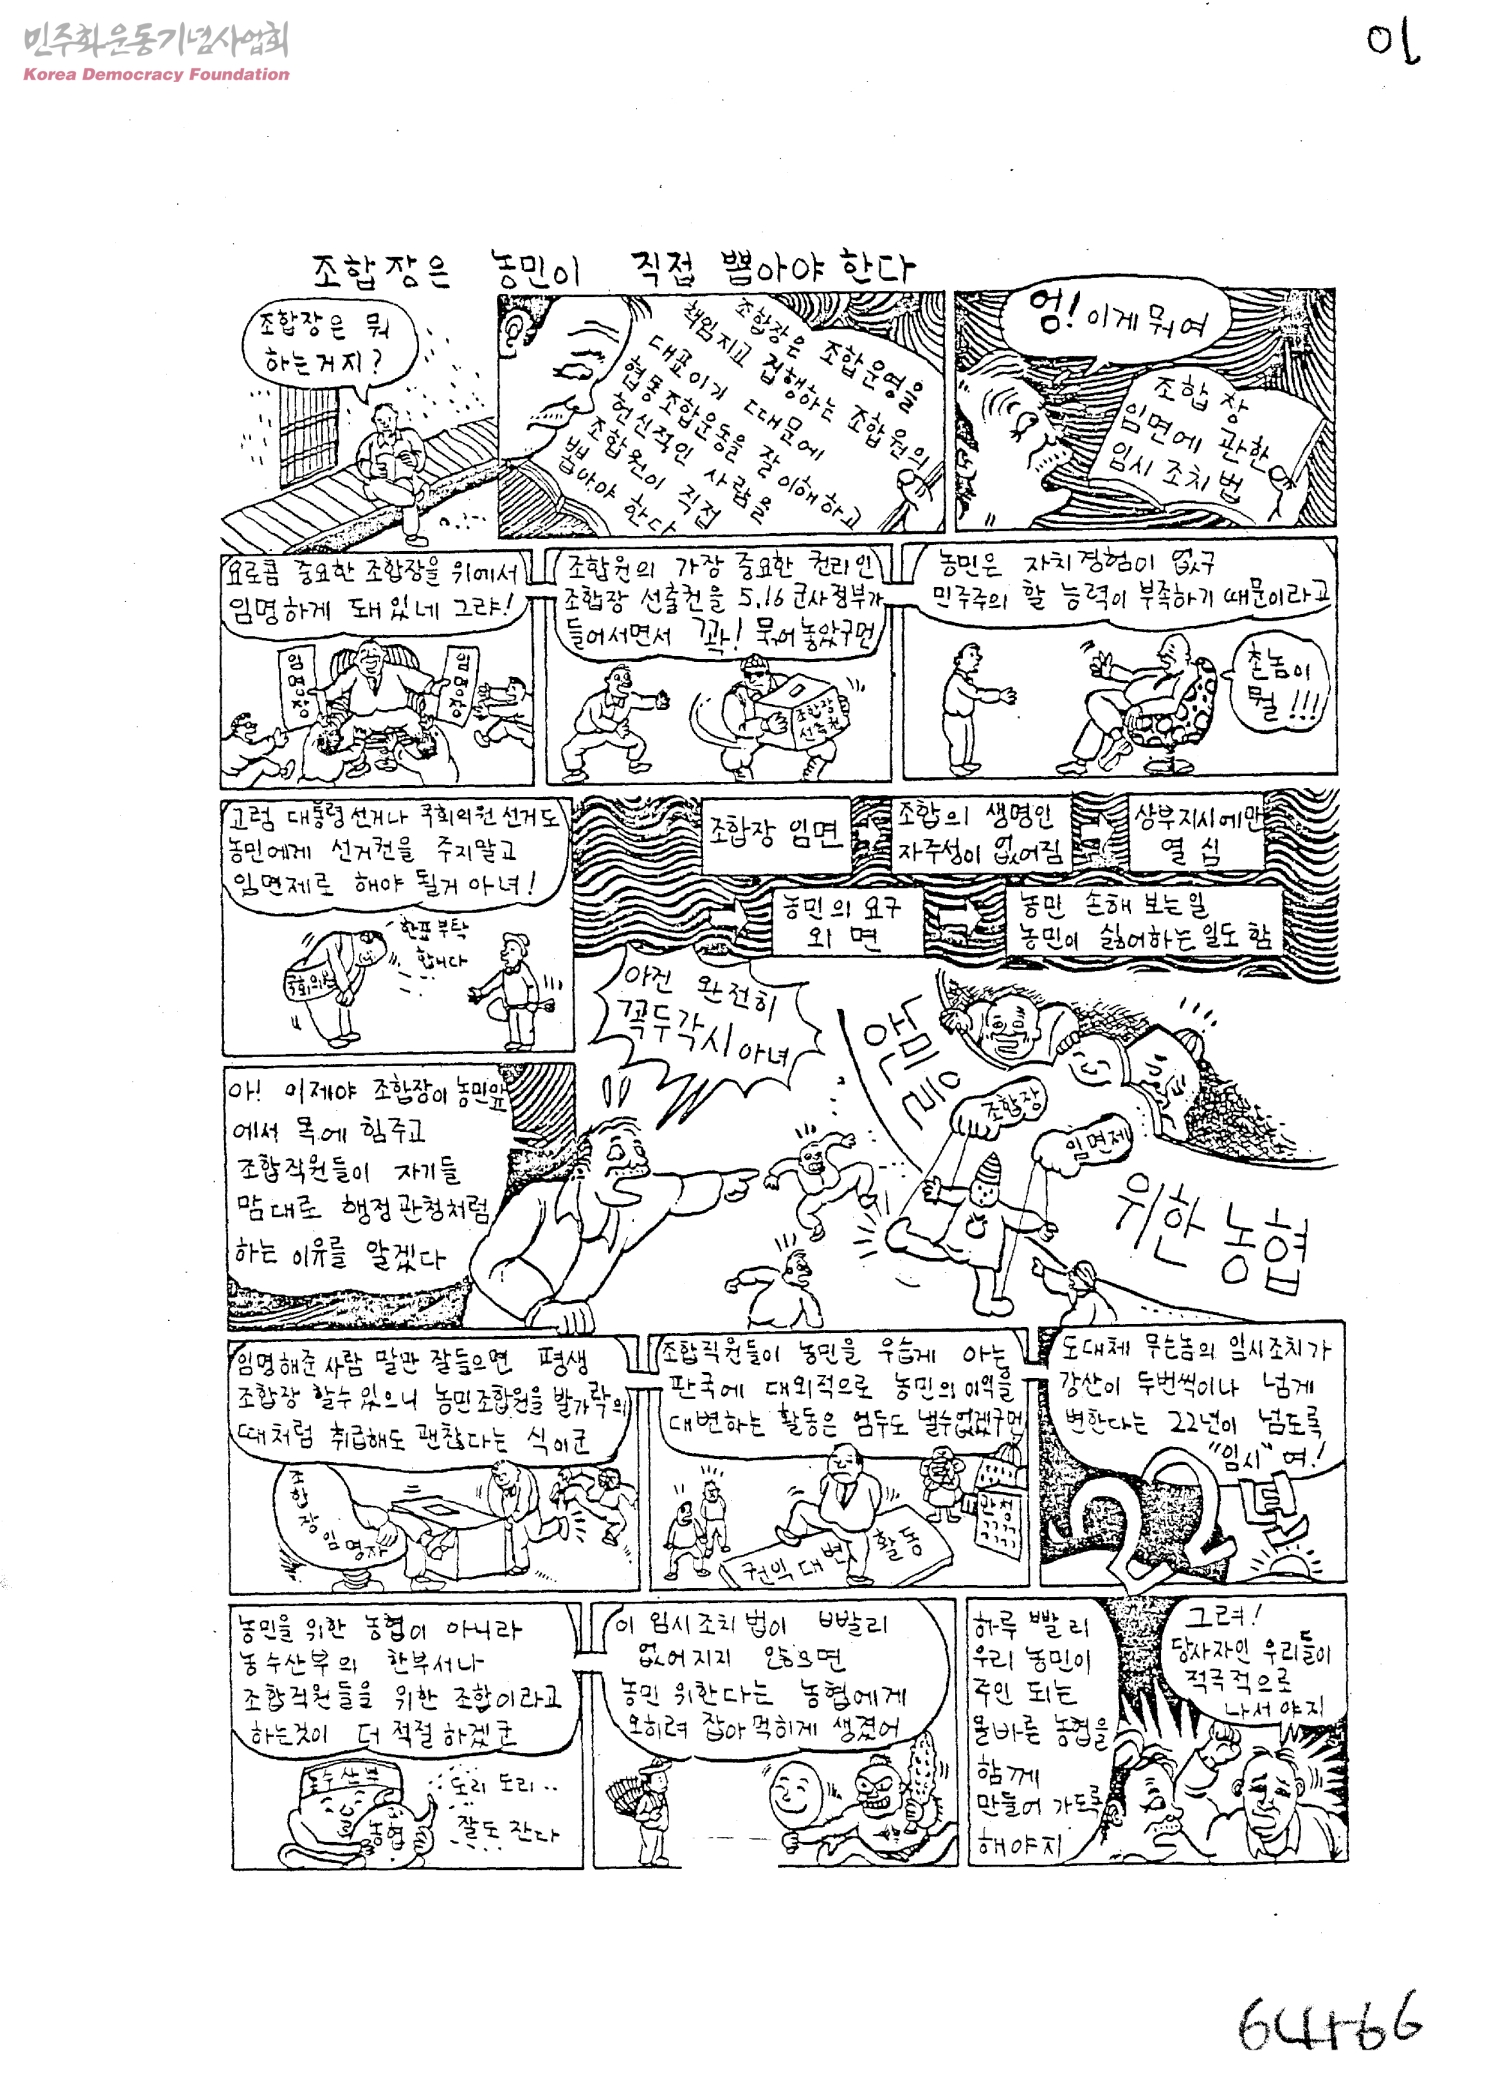 민주화운동기념사업회
Korea Democracy Foundation
01
조합장은 농민이 직접 뽑아야 한다
조합장은 뭐
하는거지?
조합장은 조합운영을
책임지고 집행하는 조합원의
대표이기 때문에
협동조합운동을 잘 이해하고
헌신적인 사람을
조합원이 직접
뽑아야 한다
엄! 이게 뭐여
조합장
임면에 관한
임시 조치법
요로콤 중요한 조합장을 위에서
임명하게 돼있네 그랴!
임명장
임명장
조합원의 가장 중요한 권리인
조합장 선출권을 5.16 군사정부가
들어서면서 꽉! 묶어놓았구먼
조합장
선출권
농민은 자치경험이 없구
민주주의 할 능력이 부족하기 때문이라고
촌놈이
뭘!!!
고럼 대통령선거나 국회의원선거도
농민에게 선거권을 주지말고
임면제로 해야 될거 아녀!
한표부탁
합니다
국회의원
조합장 임면
조합의 생명인
자주성이 없어짐
상부지시에만
열심
농민의 요구
외면
농민 손해 보는일
농민이 싫어하는일도 함
아! 이제야 조합장이 농민앞
에서 목에 힘주고
조합직원들이 자기들
맘대로 행정관청처럼
하는 이유를 알겠다
아젼 완전히
꼭두각시 아녀
농민을
위한 농협
조합장
임면제
임명해준 사람 말만 잘들으면 평생
조합장 할수 있으니 농민조합원을 발가락의
때처럼 취급해도 괜찮다는 식이군
조합장 임명자
조합직원들이 농민을 우습게 아는
판국에 대외적으로 농민의 이익을
대변하는 활동은 엄두도 낼수없겠구먼
관청
권익대변 활동
도대체 무슨놈의 임시조치가
강산이 두번씩이나 넘게
변한다는 22년이 넘도록
"임시"여!
22년
농민을 위한 농협이 아니라
농수산부의 한부서나
조합직원들을 위한 조합이라고
하는것이 더 적절하겠군
농수산부
농협
도리 도리..
잘도 잔다
이 임시조치법이 빨리
없어지지 않으면
농민 위한다는 농협에게
오히려 잡아 먹히게 생겼어
하루 빨리
우리 농민이
주인 되는
올바른 농협을
함께
만들어 가도록
해야지
그려!
당사자인 우리들이
적극적으로
나서야지
64466